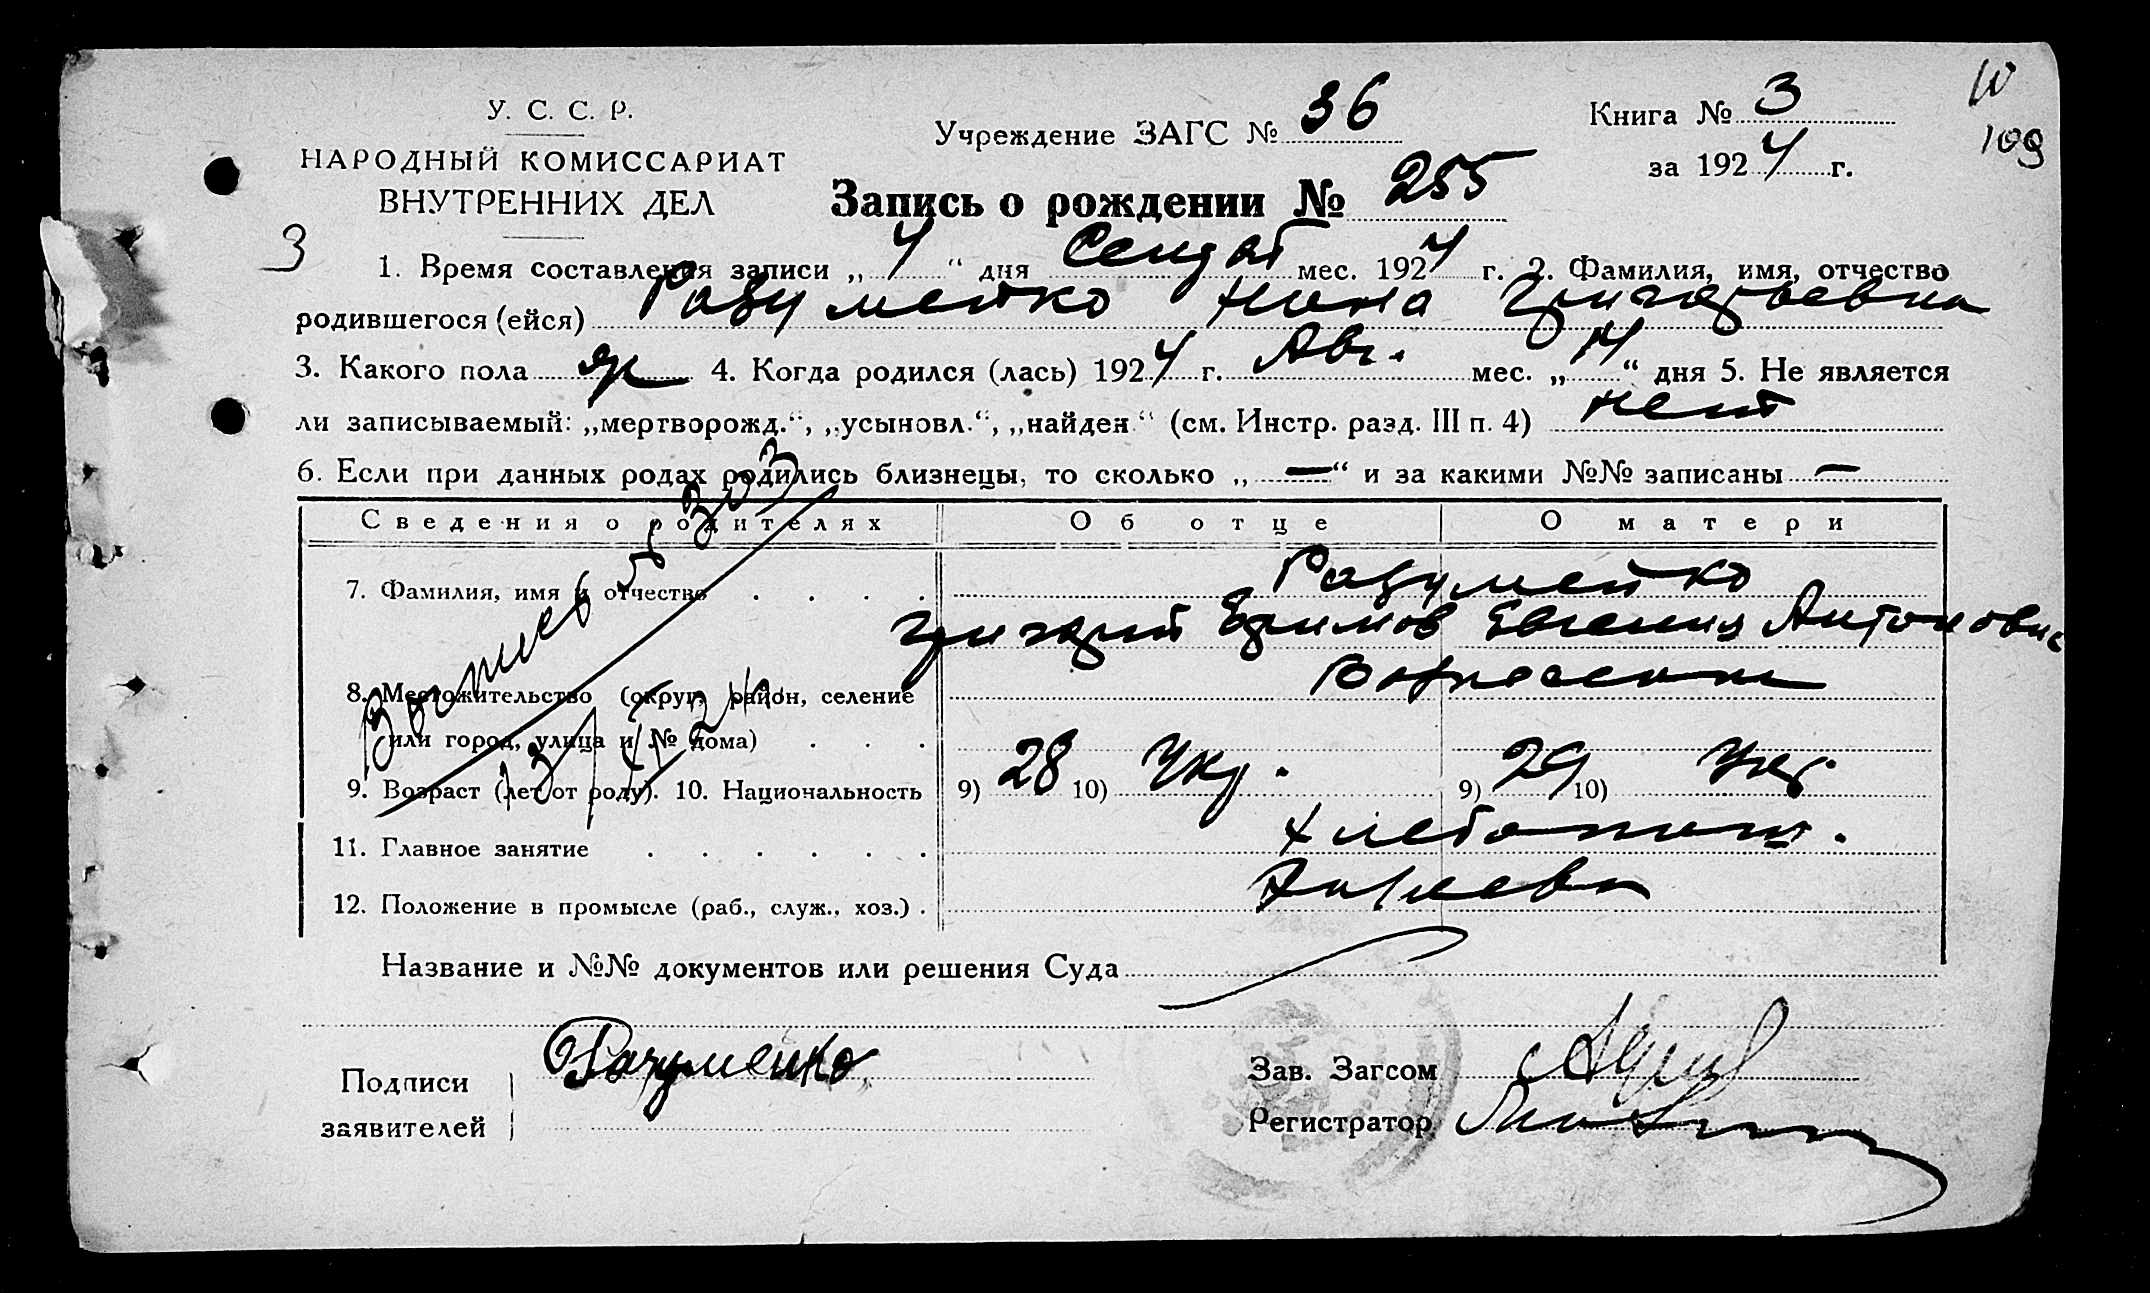 У. С. С. Р.
НАРОДНЫЙ КОМИССАРИАТ
ВНУТРЕННИХ ДЕЛ
Учреждение ЗАГС № 36
Книга № 3
за 1924 г.
109
Запись о рождении № 255
3
1. Время составления записи „ 4 “ дня мес. 1924 г. 2. Фамилия, имя, отчество
родившегося (ейся) Разуменко Нина Григорьевна
3. Какого пола ж 4. Когда родился (лась) 1924 г. Авг. мес. „ 14 “ дня 5. Не является
ли записываемый: „мертворожд.“, „усыновл.“, „найден“ (см. Инстр. разд. III п. 4) нет
6. Если при данных родах родились близнецы, то сколько „ — “ и за какими №№ записаны —
Сведения о родителях Об отце О матери
7. Фамилия, имя и отчество . . . . Разуменко
Григорий Ефимов Евгения Антоновна
8. Местожительство (округ, район, селение
или город, улица и № дома) . . .
9. Возраст (лет от роду). 10. Национальность 9) 28 10) Укр. 9) 29 10) Укр.
11. Главное занятие . . . . . . Хлебопаш.
12. Положение в промысле (раб., служ., хоз.) . Хозяева
Название и №№ документов или решения Суда
Подписи Разуменко
заявителей
Зав. Загсом
Регистратор